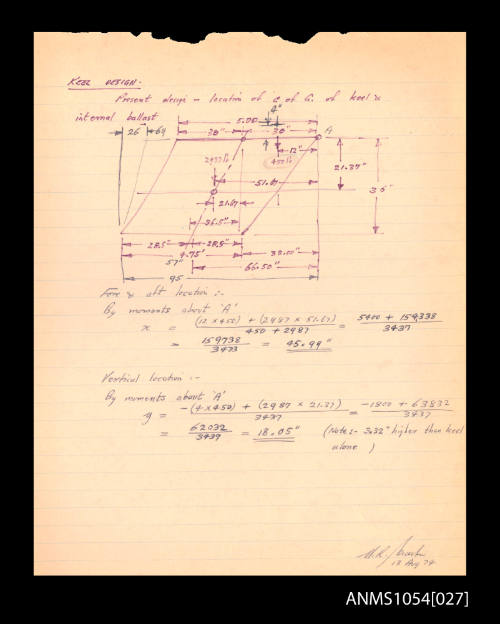 KEEL DESIGN.
Present design - location of C of G. of keel &
internal ballast
4"
5.00'
26 64
30" 30" A
12"
2987 lb 450 lb
21.37"
36"
51.67
21.67
36.5"
28.5" 28.5" 38.00"
4.75'
57" 66.50"
95
Fore & aft location :-
By moments about 'A'
x = (12 x 450) + (2987 x 51.67) / 450 + 2987 = 5400 + 154338 / 3437
= 159738 / 3473 = 45.99"
Vertical location :-
By moments about 'A'
y = -(4 x 450) + (2987 x 21.37) / 3437 = -1800 + 63832 / 3437
= 62032 / 3437 = 18.05" (Note:- 3.32" higher than keel
alone )
Aug 74
ANMS1054[027]